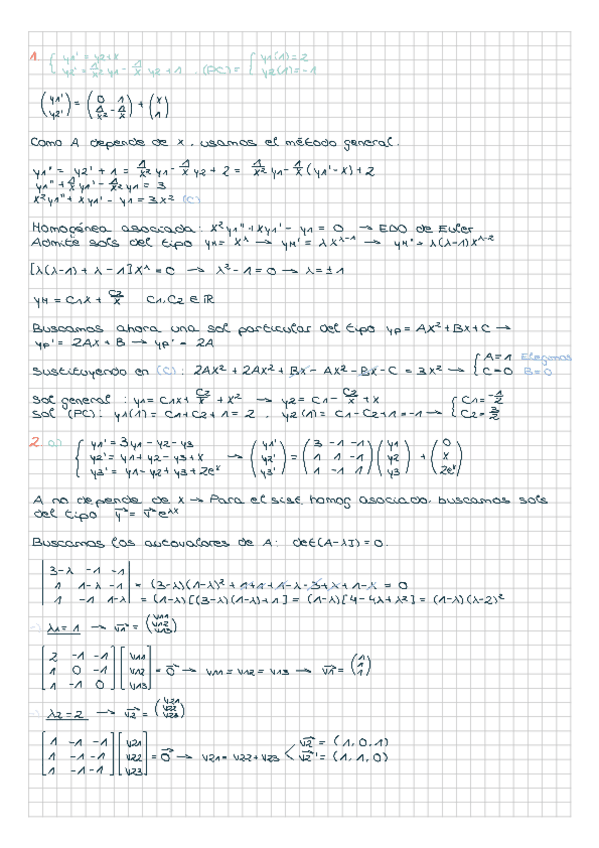 1. { y1' = y2+x
{ y2' = 1/x² y1 - 1/x y2 + 1 . (PC) = { y1(1) = 2
{ y2(1) = -1
(y1' y2') = (0 1 1/x² -1/x) + (x 1)
Como A depende de x, usamos el método general.
y1'' = y2' + 1 = 1/x² y1 - 1/x y2 + 2 = 1/x² y1 - 1/x (y1' - x) + 2
y1'' + 1/x y1' - 1/x² y1 = 3
x² y1'' + x y1' - y1 = 3x² (C)
Homogénea asociada: x² y1'' + x y1' - y1 = 0 → EDO de Euler
Admite sols del tipo yH = x^λ → yH' = λ x^(λ-1) → yH'' = λ(λ-1)x^(λ-2)
[λ(λ-1) + λ - 1] x^λ = 0 → λ² - 1 = 0 → λ = ±1
yH = C1x + C2/x C1, C2 ∈ ℝ
Buscamos ahora una sol particular del tipo yp = Ax² + Bx + C →
yp' = 2Ax + B → yp'' = 2A
Sustituyendo en (C): 2Ax² + 2Ax² + Bx - Ax² - Bx - C = 3x² → { A=1 Elegimos
{ C=0 B=0
Sol general: y1 = C1x + C2/x + x² → y2 = C1 - C2/x + x
Sol (PC): y1(1) = C1 + C2 + 1 = 2 , y2(1) = C1 - C2 + 1 = -1 → { C1 = -1/2
{ C2 = 3/2
2 a) { y1' = 3y1 - y2 - y3
{ y2' = y1 + y2 - y3 + x → (y1' y2' y3') = (3 -1 -1 1 1 -1 1 -1 1)(y1 y2 y3) + (0 x 2e^x)
{ y3' = y1 - y2 + y3 + 2e^x
A no depende de x → Para el sist. homog asociado, buscamos sols
del tipo y = v e^λx
Buscamos los autovalores de A: det(A - λI) = 0.
|3-λ -1 -1|
|1 1-λ -1| = (3-λ)(1-λ)² + 1 + 1 + 1 - λ - 3 + λ + 1 - λ = 0
|1 -1 1-λ| = (1-λ)[(3-λ)(1-λ) + 1] = (1-λ)[4 - 4λ + λ²] = (1-λ)(λ-2)²
-) λ1 = 1 → v1 = (v11 v12 v13)
[2 -1 -1] [v11]
[1 0 -1] [v12] = 0 → v11 = v12 = v13 → v1 = (1 1 1)
[1 -1 0] [v13]
-) λ2 = 2 → v2 = (v21 v22 v23)
[1 -1 -1] [v21] v2 = (1, 0, 1)
[1 -1 -1] [v22] = 0 → v21 = v22 + v23 < v2' = (1, 1, 0)
[1 -1 -1] [v23]